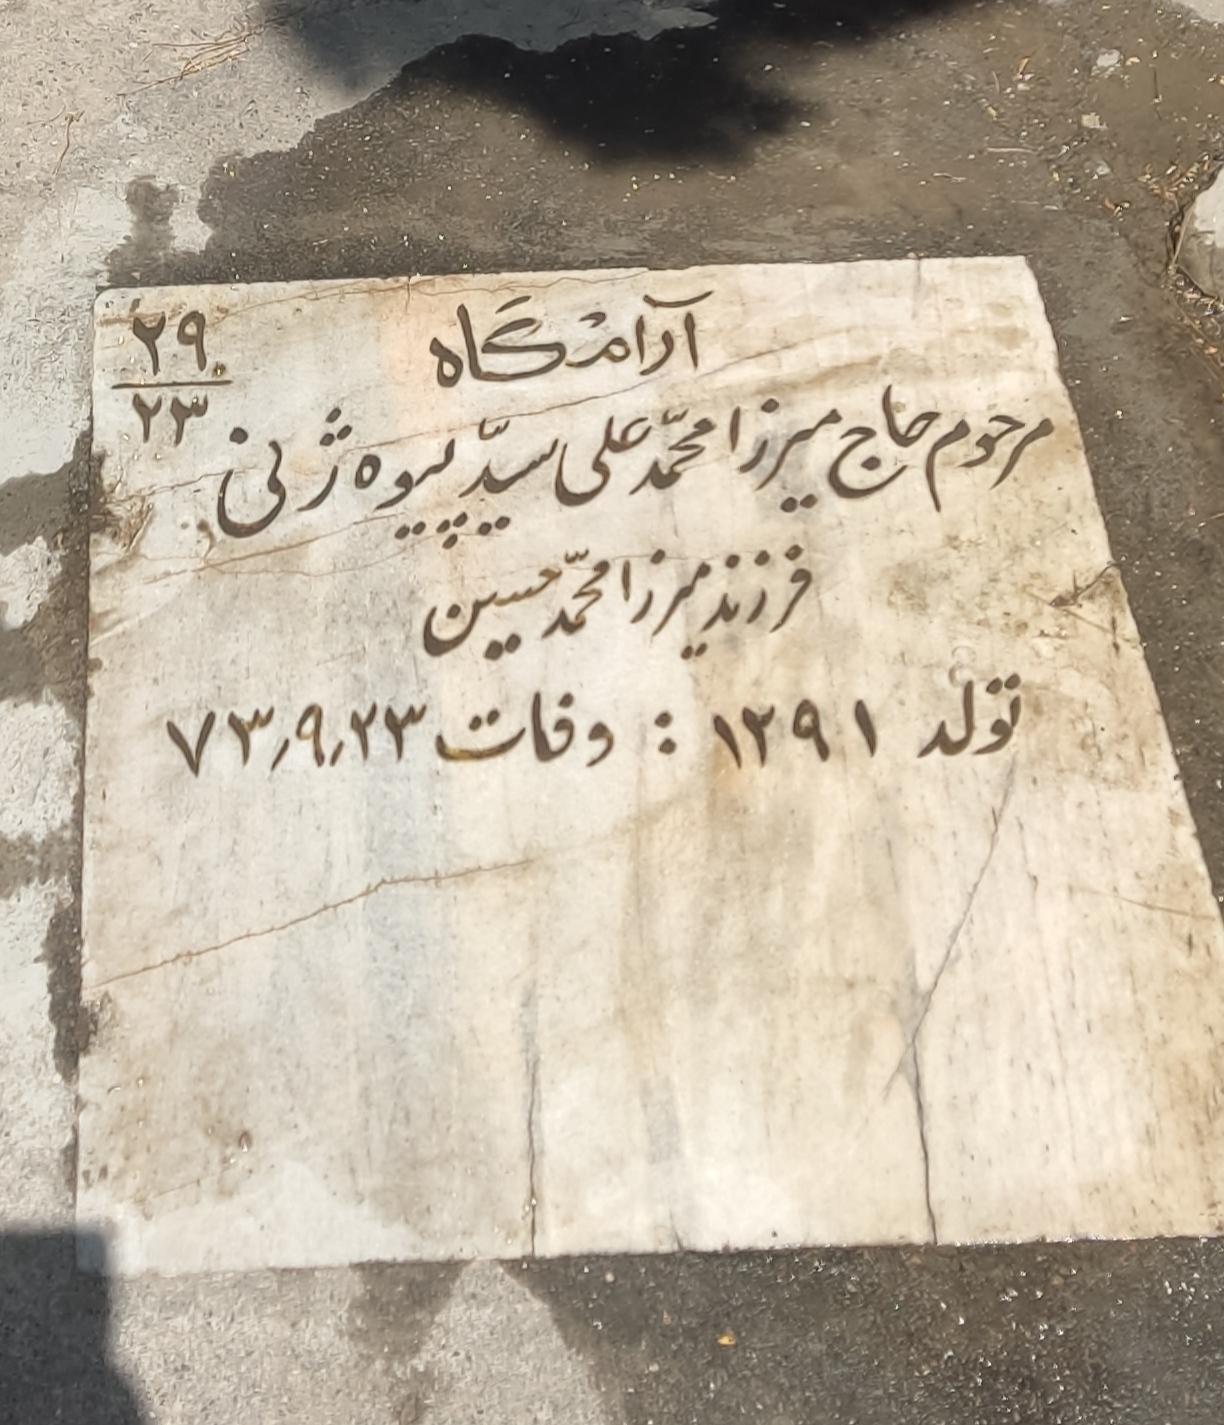 آرامگاه
۲۹
۲۳
مرحوم حاج میرزا محمّد علی سیّد پیوه ژنی
فرزند میرزا محمّد حسین
تولد ۱۲۹۱ : وفات ۷۳٫۹٫۲۳